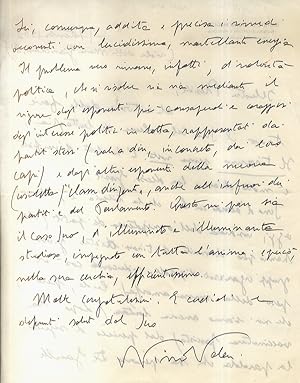 Lei, comunque, addita e precisa i rimedi
occorrenti con lucidissima, martellante energia
Il problema vero rimane, infatti, di volontà
politica, che si risolve sia mediante il
vigore degli esponenti più consapevoli e coraggiosi
degli interessi politici in lotta, rappresentati da
partiti stessi (vale a dire, in concreto, dai loro
capi) e degli altri esponenti della
(cosidetta) classe dirigente, anche all'infuori dei
partiti e del Parlamento. Questo mi pare sia
il caso Suo, d'illuminato e illuminante
studioso, impegnato con tutta l'anima e perciò,
nella sua cerchia, efficientissimo.
Molte congratulazioni. E cordiali e
saluti dal Suo
Nino Valeri